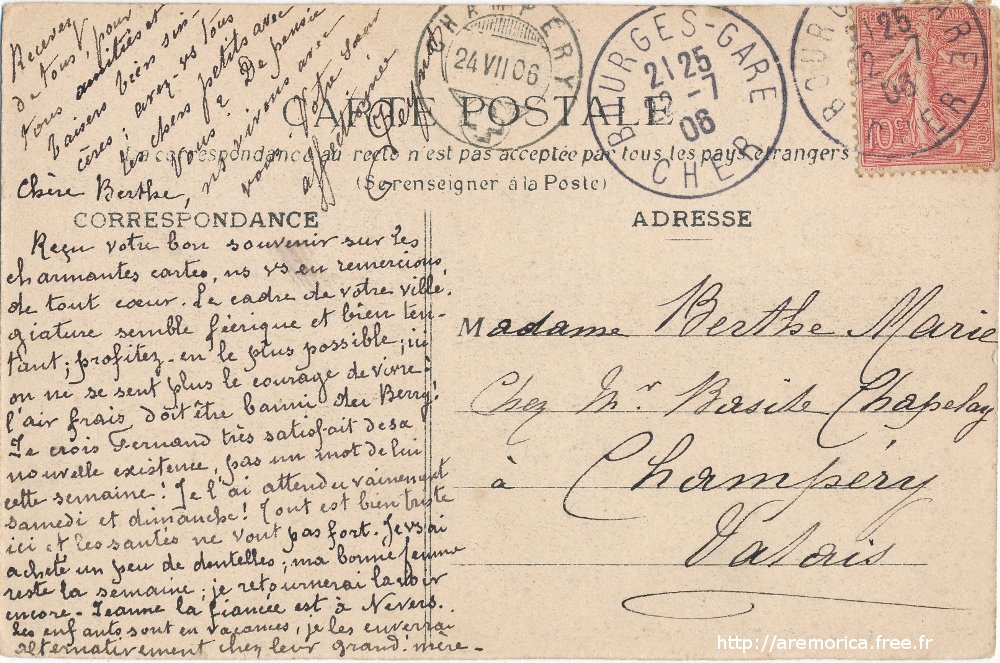 CARTE POSTALE
La correspondance au recto n'est pas acceptée par tous les pays étrangers
(Se renseigner à la Poste)
CORRESPONDANCE
ADRESSE
CHAMPÉRY
24 VII 06
BOURGES-GARE
21 25
-7
06
CHER
BOURG ARE
25
-7
06
ER
10
Chère Berthe,
Reçu votre bon souvenir sur les
charmantes cartes, ns vs en remercions
de tout cœur. Le cadre de votre villé-
giature semble féerique et bien ten-
tant; profitez-en le plus possible; ici
on ne se sent plus le courage de vivre!
l'air frais doit être banni du Berry!
Je crois Fernand très satisfait de sa
nouvelle existence, pas un mot de lui
cette semaine! Je l'ai attendu vainement
samedi et dimanche! Tout est bien triste
ici et les santés ne vont pas fort. Je vs ai
acheté un peu de dentelles; ma bonne femme
reste la semaine; je retournerai la voir
encore - Jeanne la fiancée est à Nevers.
Les enfants sont en vacances, je les enverrai
alternativement chez leur grand'mère -
Recevez
de tous, pour
tous amitiés et
baisers bien sin-
cères; avez-vs tous
les chers petits avec
vous? De pensée
nous vivons avec
vous. Votre
affectionnée
Madame Berthe Marie
Chez Mr Basile Chapelay
à Champéry
Valais
http://aremorica.free.fr